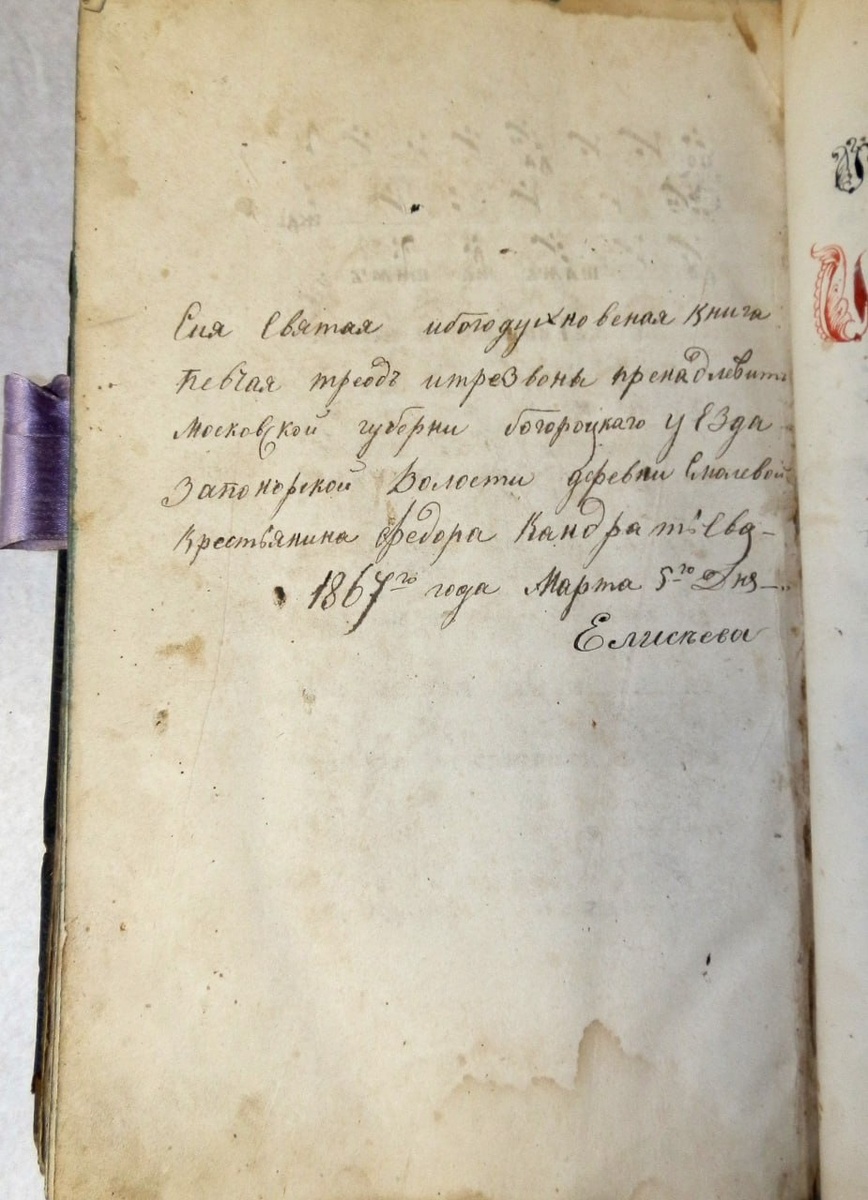 Сия Святая ибогодухновеная Книга
Певчая треодъ итрезвоны пренадлежитъ
Московской губерни богороцкаго уезда
Запонорской Волости деревни Смолевой
Крестьянина федора Кандратьева
1867го года Марта 5го Дня
Елисѣева